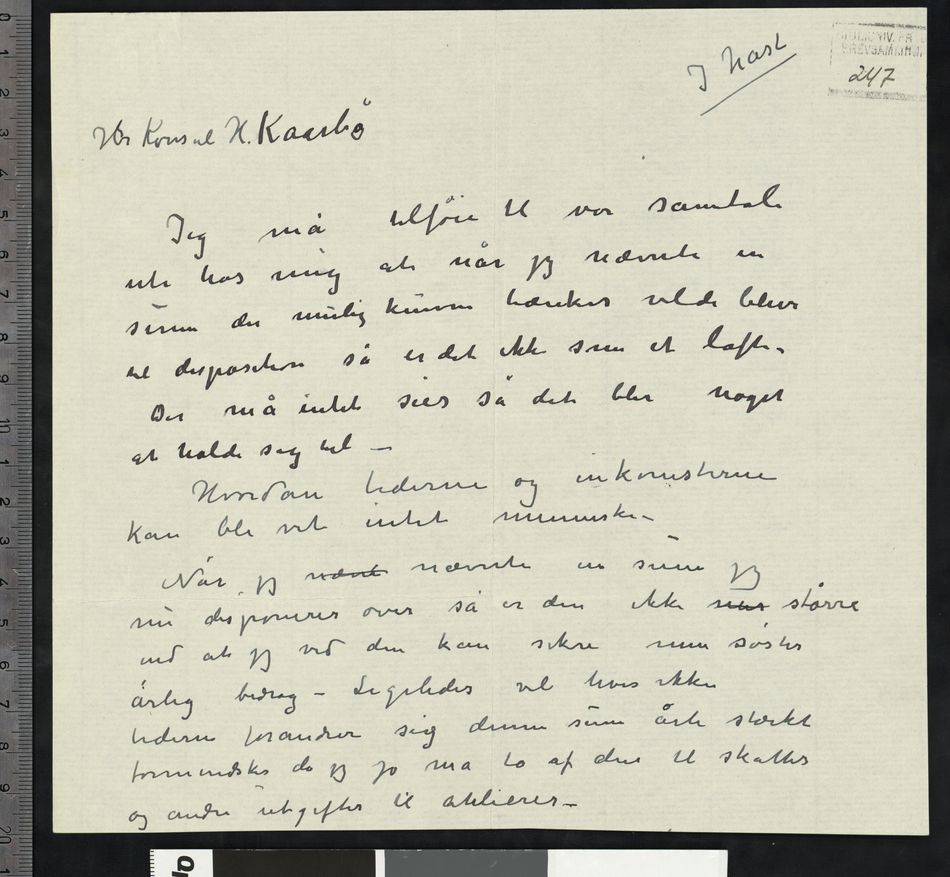 I hast
247
Hr Konsul H. Kaarbø
Jeg må tilføie til vor samtale
ute hos mig at når jeg nævnte en
sum der mulig kunne tænkes vilde blive
til disposition så er det ikke som et løfte.
Der må intet sies så det blir noget
at holde sig til –
Hvordan tiderne og inkomsterne
kan bli vet intet menneske –
Når jeg nævnte nævnte en sum jeg
nu disponerer over så er den ikke større
end at jeg ved den kan sikre min søster
årlig bidrag – Ligeledes vil hvis ikke
tiderne forandrer sig denne sum årle stærkt
formindskes da jeg jo må ta af den til skatter
og andre utgifter til atelierer –